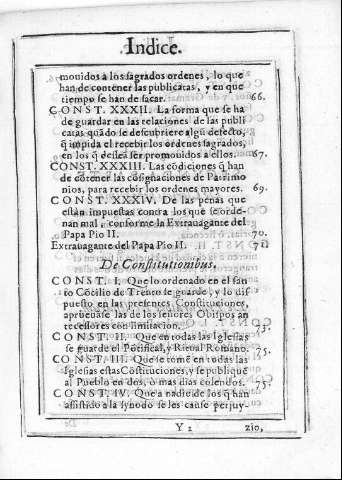 Indice.
mouidos à los sagrados ordenes, lo que
han de contener las publicatas, y en que
tiempo se han de sacar. 66.
CONST. XXXII. La forma que se ha
de guardar en las relaciones de las publi
catas quãdo se descubriere algũ defecto,
q̃ impida el recebir los ordenes sagrados,
en los q̃ dessea ser promouido a ellos. 67.
CONST. XXXIII. Las cõdiciones q̃ han
de cõtener las cõsignaciones de Patrimo
nios, para recebir los ordenes mayores. 69.
CONST. XXXIV. De las penas que
estàn impuestas contra los que se orde-
nan mal, conforme la Extrauagante del
Papa Pio II. 70.
Extrauagante del Papa Pio II. 71
De Constitutionibus.
CONST. I. Que lo ordenado en el san
to Cõcilio de Trento se guarde, y lo dis
puesto en las presentes Constituciones,
aprueuase las de los señores Obispos an
tecessores con limitacion. 75.
CONST. II. Que en todas las Iglesias
se guarde el Põtifical, y Ritual Romano. 75.
CONST. III. Que se tomẽ en todas las
Iglesias estas Cõstituciones, y se publiquẽ
al Pueblo en dos, ò mas dias colendos. 75.
CONST. IV. Que a nadie de los q̃ han
assistido a la synodo se les cause perjuy-
Y 2 zio,